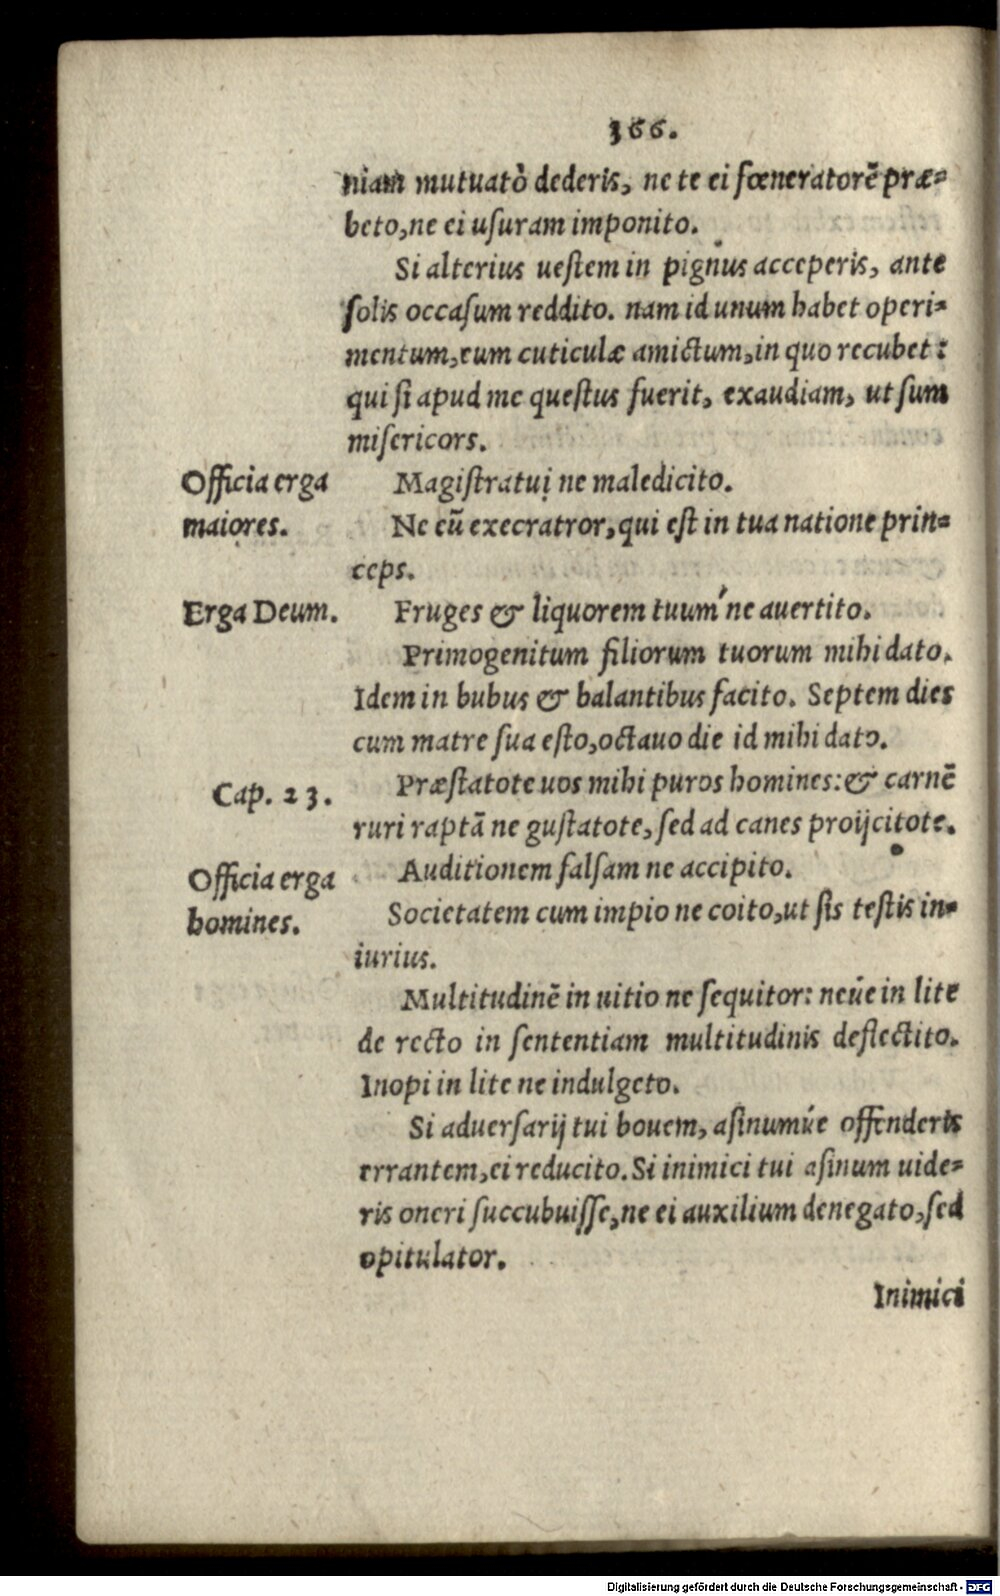 366.
niam mutuatò dederis, ne te ei fœneratorē præ=
beto, ne ei uſuram imponito.
Si alterius ueſtem in pignus acceperis, ante
ſolis occaſum reddito. nam id unum habet operi=
mentum, eum cuticulæ amictum, in quo recubet:
qui ſi apud me queſtus fuerit, exaudiam, ut ſum
miſericors.
Officia erga
maiores.
Magiſtratui ne maledicito.
Ne eū execratror, qui eſt in tua natione prin=
ceps.
Erga Deum.
Fruges & liquorem tuum ne auertito.
Primogenitum filiorum tuorum mihi dato.
Idem in bubus & balantibus facito. Septem dies
cum matre ſua eſto, octauo die id mihi dato.
Cap. 23.
Præſtatote uos mihi puros homines: & carnē
ruri raptā ne guſtatote, ſed ad canes proijcitote.
Officia erga
homines.
Auditionem falſam ne accipito.
Societatem cum impio ne coito, ut ſis teſtis in=
iurius.
Multitudinē in uitio ne ſequitor: neúe in lite
de recto in ſententiam multitudinis deflectito.
Inopi in lite ne indulgeto.
Si aduerſarij tui bouem, aſinumúe offenderis
errantem, ei reducito. Si inimici tui aſinum uide=
ris oneri ſuccubuiſſe, ne ei auxilium denegato, ſed
opitulator.
Inimici
Digitalisierung gefördert durch die Deutsche Forschungsgemeinschaft - DFG